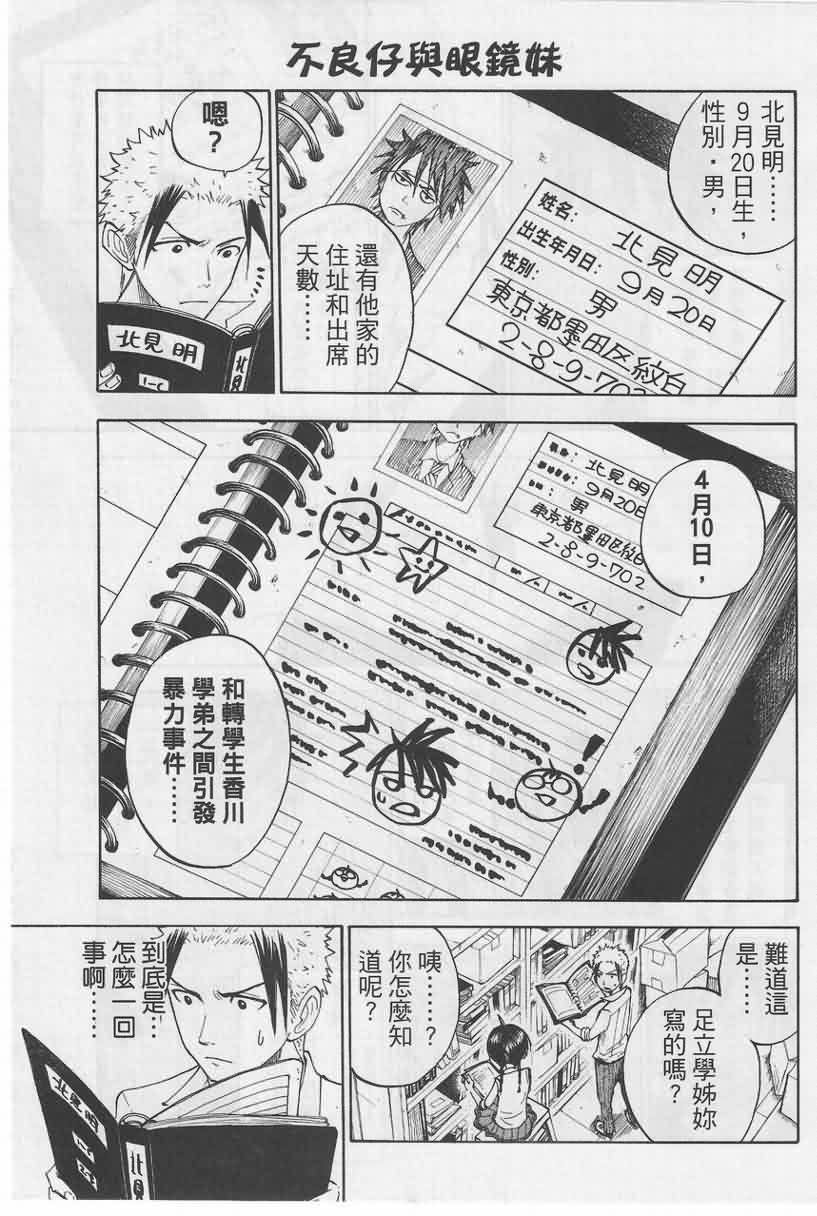 不良仔與眼鏡妹
北見明……
9月20日生，
性別・男，
姓名：
北見明
出生年月日：
9月20日
性別：
男
東京都墨田区紋白
2-8-9-702
還有他家的
住址和出席
天數……
嗯？
北見明
1-C
4月10日，
北見明
9月20日
男
2-8-9-702
和轉學生香川
學弟之間引發
暴力事件……
難道這
是……
足立學姊妳
寫的嗎？
咦……？
你怎麼知
道呢？
到底是…
怎麼一回
事啊……